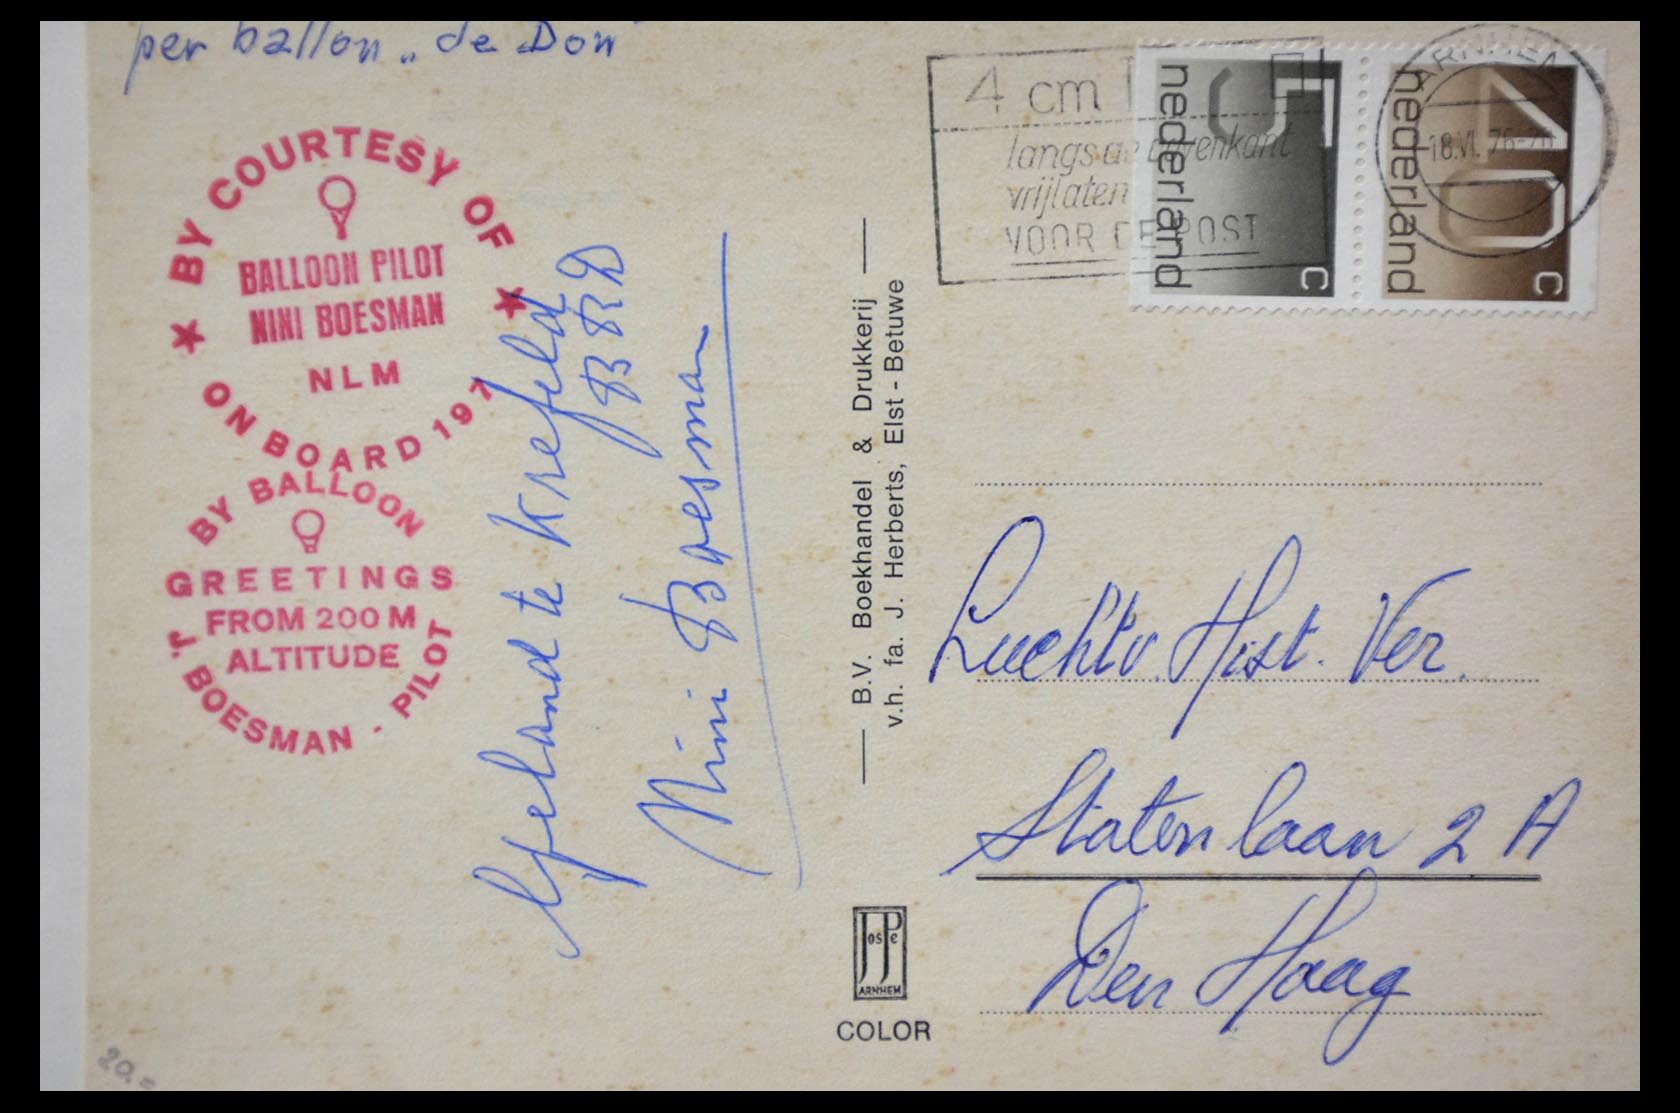 per ballon „de Don"
BY COURTESY OF
BALLOON PILOT
NINI BOESMAN
NLM
ON BOARD 197
BY BALLOON
GREETINGS
FROM 200 M
ALTITUDE
J. BOESMAN - PILOT
Geland te Krefeld
BRD
Nini Boesman
B.V. Boekhandel & Drukkerij
v.h. fa. J. Herberts, Elst - Betuwe
4 cm
langs de bovenkant
vrijlaten
VOOR DE POST
nederland
5 c
nederland
40 c
ARNHEM
18.VI. 76
Luchtv. Hist. Ver.
Statenlaan 2 A
Den Haag
JosPe
ARNHEM
COLOR
20,=